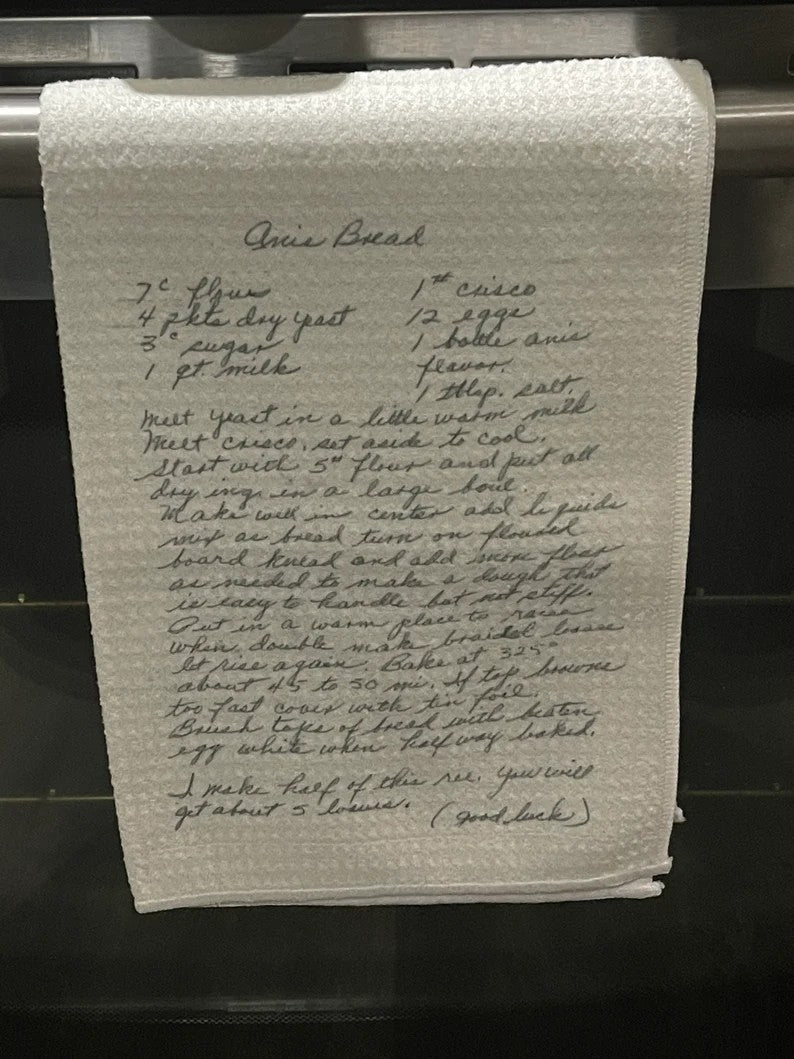 Anis Bread
7c flour
4 pkts dry yeast
3c sugar
1 qt. milk
1# crisco
12 eggs
1 bottle anis
flavor.
1 tblsp. salt.
Melt yeast in a little warm milk
Melt crisco, set aside to cool.
Start with 5# flour and put all
dry ing. in a large bowl.
Make well in center add liquids
mix as bread turn on floured
board knead and add more flour
as needed to make a dough that
is easy to handle but not stiff.
Put in a warm place to raise
when double make braided loaves
let rise again. Bake at 325°
about 45 to 50 mi. If top browns
too fast cover with tin foil.
Brush tops of bread with beaten
egg white when half way baked.
I make half of this rec. you will
get about 5 loaves. (good luck)